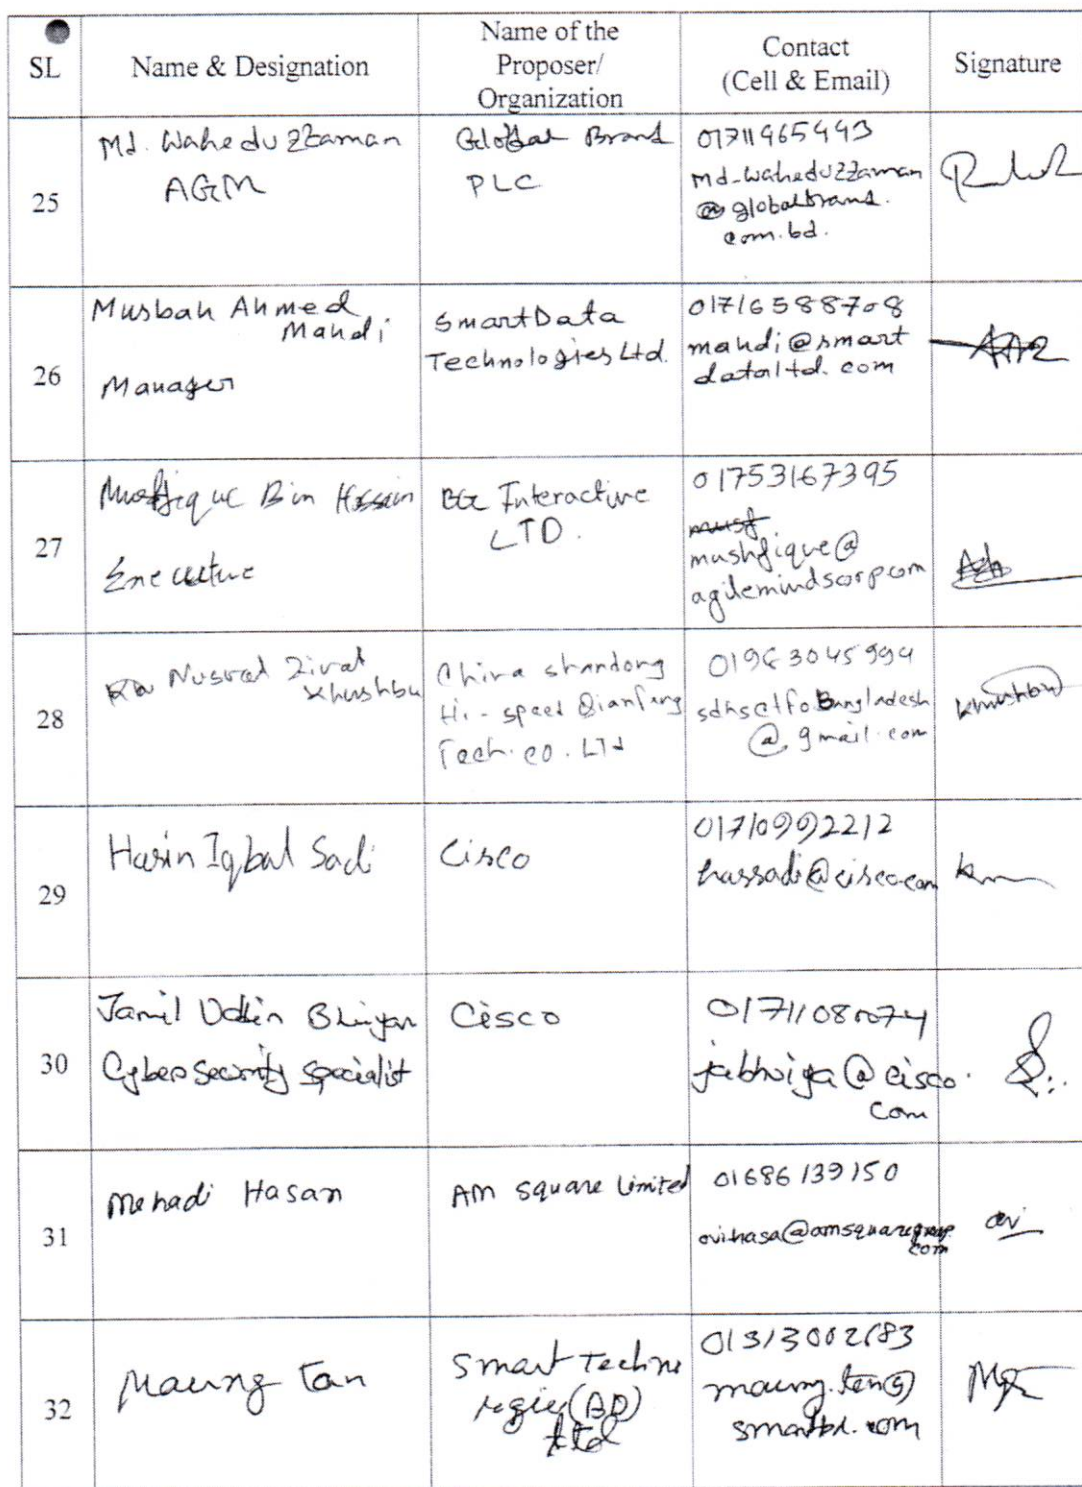 SL
Name & Designation
Name of the
Proposer/
Organization
Contact
(Cell & Email)
Signature
25
Md. Waheduzzaman
AGM
Global Brand
PLC
01711465493
md-waheduzzaman
@globalbrand.
com.bd.
26
Musbah Ahmed
Mahdi
Manager
SmartData
Technologies Ltd.
01716588708
mahdi@smart
dataltd.com
27
Bin Hossain
Executive
Interactive
LTD.
01753167395
mushfique@
agilemindscorp.com
28
Nusrat Zinat
Khushbu
China shandong
Hi-speed Qianfang
Tech.co.LTd
@gmail.com
Khushbu
29
Iqbal Sadi
Cisco
01710992212
hassadi@cisco.com
30
Jamil Uddin Bhuiyan
Cybersecurity specialist
Cisco
jabhuiya@cisco.
com
31
Mehadi Hasan
AM square Limited
01686139150
ovihasa@amsquaregroup.
com
ovi
32
Maung Tan
Smart Techno
logies(BD)
Ltd
maung.tan@
smartbd.com